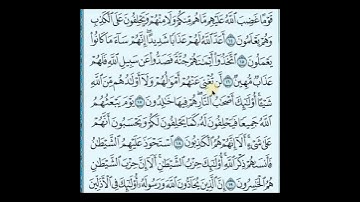 قَوْمًا غَضِبَ ٱللَّهُ عَلَيْهِم مَّا هُم مِّنكُمْ وَلَا مِنْهُمْ وَيَحْلِفُونَ عَلَى ٱلْكَذِبِ
وَهُمْ يَعْلَمُونَ ١٤ أَعَدَّ ٱللَّهُ لَهُمْ عَذَابًا شَدِيدًا إِنَّهُمْ سَآءَ مَا كَانُوا۟
يَعْمَلُونَ ١٥ ٱتَّخَذُوٓا۟ أَيْمَـٰنَهُمْ جُنَّةً فَصَدُّوا۟ عَن سَبِيلِ ٱللَّهِ فَلَهُمْ
عَذَابٌ مُّهِينٌ ١٦ لَّن تُغْنِىَ عَنْهُمْ أَمْوَٰلُهُمْ وَلَآ أَوْلَـٰدُهُم مِّنَ ٱللَّهِ
شَيْـًٔا أُو۟لَـٰٓئِكَ أَصْحَـٰبُ ٱلنَّارِ هُمْ فِيهَا خَـٰلِدُونَ ١٧ يَوْمَ يَبْعَثُهُمُ
ٱللَّهُ جَمِيعًا فَيَحْلِفُونَ لَهُۥ كَمَا يَحْلِفُونَ لَكُمْ وَيَحْسَبُونَ أَنَّهُمْ
عَلَىٰ شَىْءٍ أَلَآ إِنَّهُمْ هُمُ ٱلْكَـٰذِبُونَ ١٨ ٱسْتَحْوَذَ عَلَيْهِمُ ٱلشَّيْطَـٰنُ
فَأَنسَىٰهُمْ ذِكْرَ ٱللَّهِ أُو۟لَـٰٓئِكَ حِزْبُ ٱلشَّيْطَـٰنِ أَلَآ إِنَّ حِزْبَ ٱلشَّيْطَـٰنِ
هُمُ ٱلْخَـٰسِرُونَ ١٩ إِنَّ ٱلَّذِينَ يُحَآدُّونَ ٱللَّهَ وَرَسُولَهُۥٓ أُو۟لَـٰٓئِكَ فِى ٱلْأَذَلِّينَ